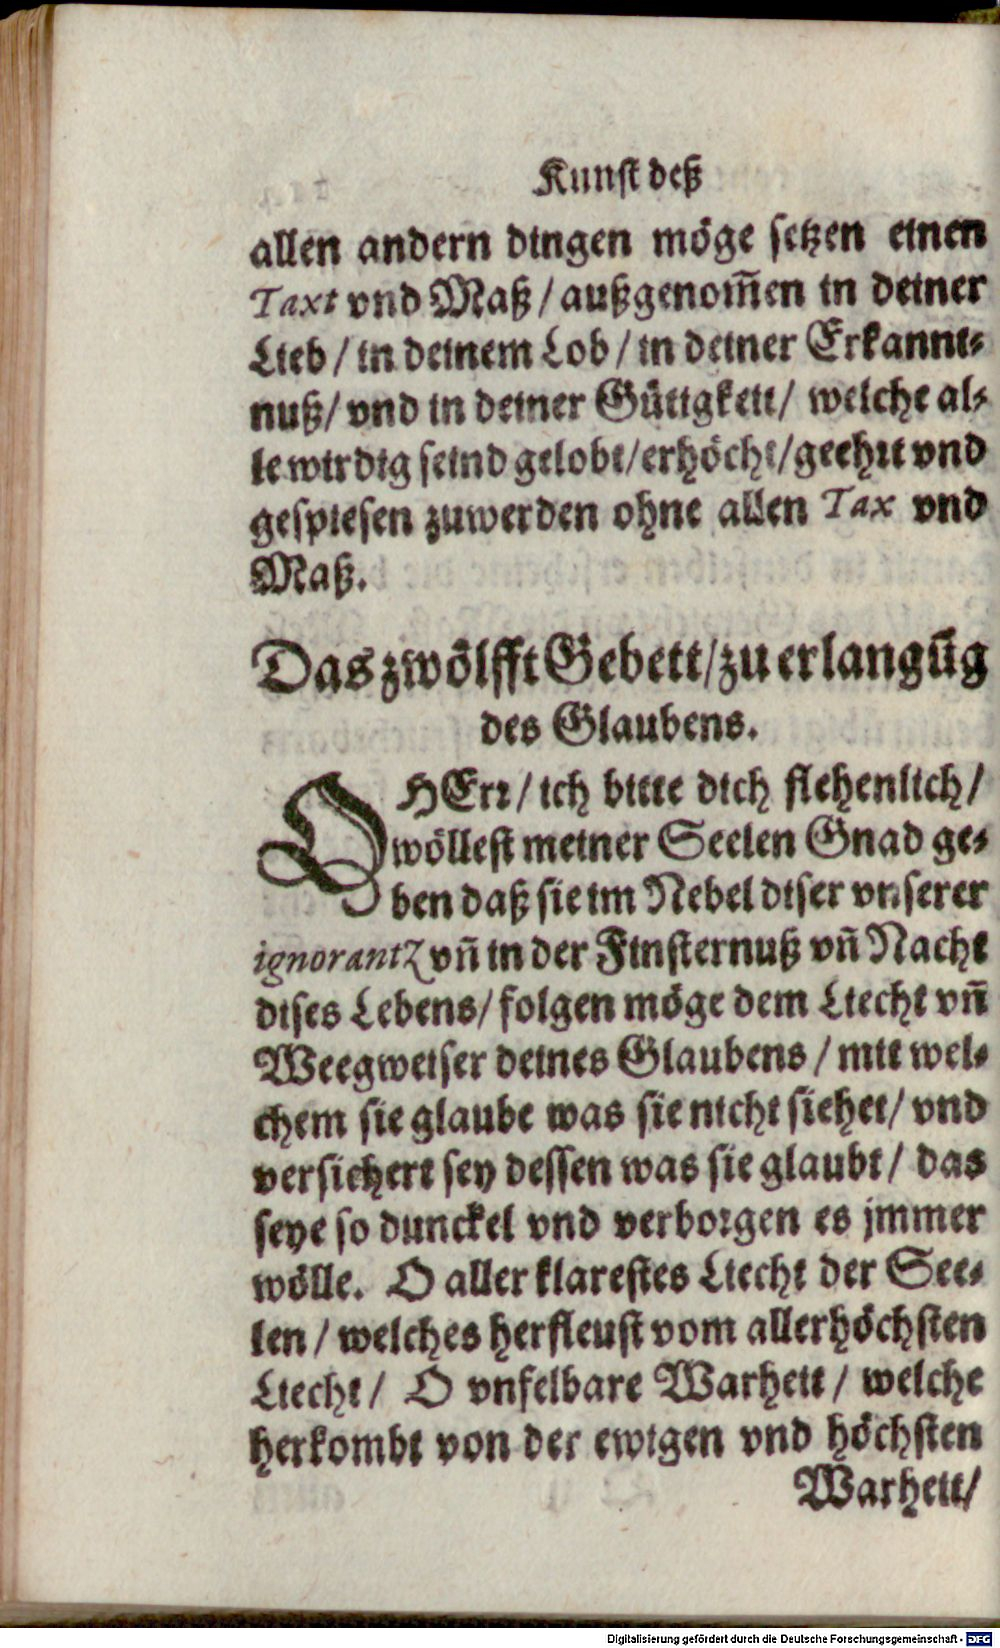 Kunst deß
allen andern dingen möge setzen einen
Taxt vnd Maß / außgenom̃en in deiner
Lieb / in deinem Lob / in deiner Erkannt-
nuß / vnd in deiner Gütigkeit / welche al-
le wirdig seind gelobt / erhöcht / geehrt vnd
gespiesen zuwerden ohne allen Tax vnd
Maß.
Das zwölfft Gebett / zu erlangũg
des Glaubens.
O HErr / ich bitte dich flehenlich /
wöllest meiner Seelen Gnad ge-
ben daß sie im Nebel diser vnserer
ignorantz vñ in der Finsternuß vñ Nacht
dises Lebens / folgen möge dem Liecht vñ
Weegweiser deines Glaubens / mit wel-
chem sie glaube was sie nicht siehet / vnd
versichert sey dessen was sie glaubt / das
seye so dunckel vnd verborgen es jmmer
wölle. O aller klarestes Liecht der See-
len / welches herfleust vom allerhöchsten
Liecht / O vnfelbare Warheit / welche
herkombt von der ewigen vnd höchsten
Warheit /
Digitalisierung gefördert durch die Deutsche Forschungsgemeinschaft - DFG